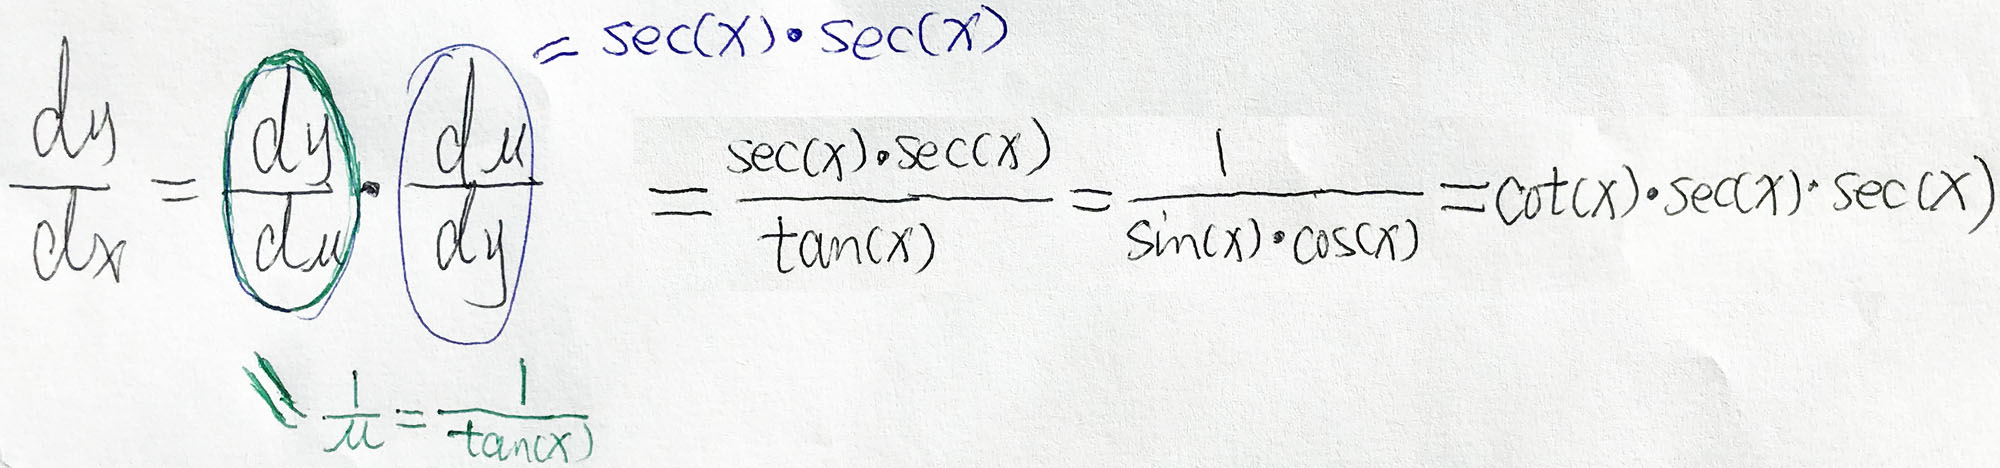 = sec(x)•sec(x)
dy/dx = dy/du • du/dy = sec(x)•sec(x)/tan(x) = 1/sin(x)•cos(x) = cot(x)•sec(x)•sec(x)
= 1/u = 1/tan(x)